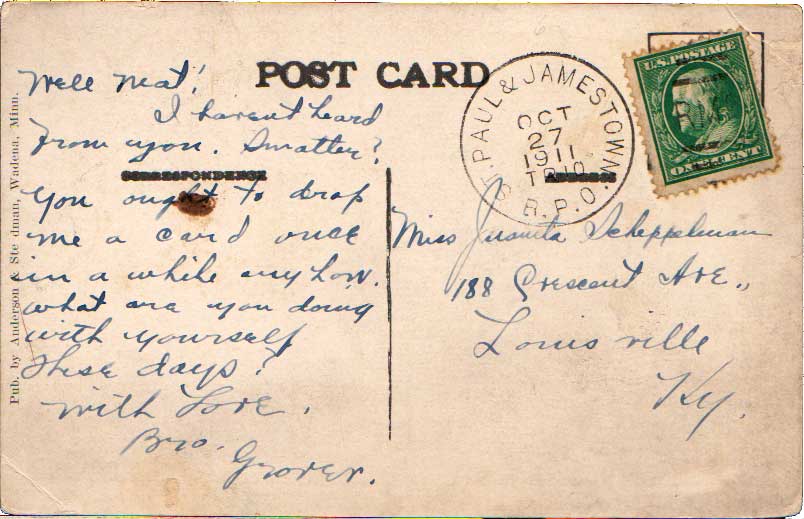 POST CARD
Well Neat!
I haven't heard
From you. Smatter?
CORRESPONDENCE
You ought to drop
me a card once
in a while anyhow.
what are you doing
with yourself
these days?
With Love,
Bro.
Grover.
Pub. by Anderson & Ste dman, Wadena, Minn.
ST. PAUL & JAMESTOWN.
OCT
27
1911
TR 10
R.P.O.
U.S. POSTAGE
ONE CENT
ADDRESS
Miss Juanita Scheppelman
188 Crescent Ave.,
Louisville
Ky.